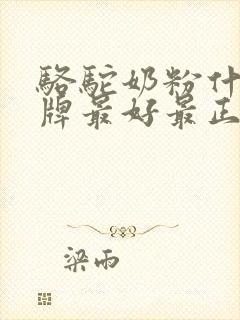 骆驼奶粉什
牌最好最正
梁雨